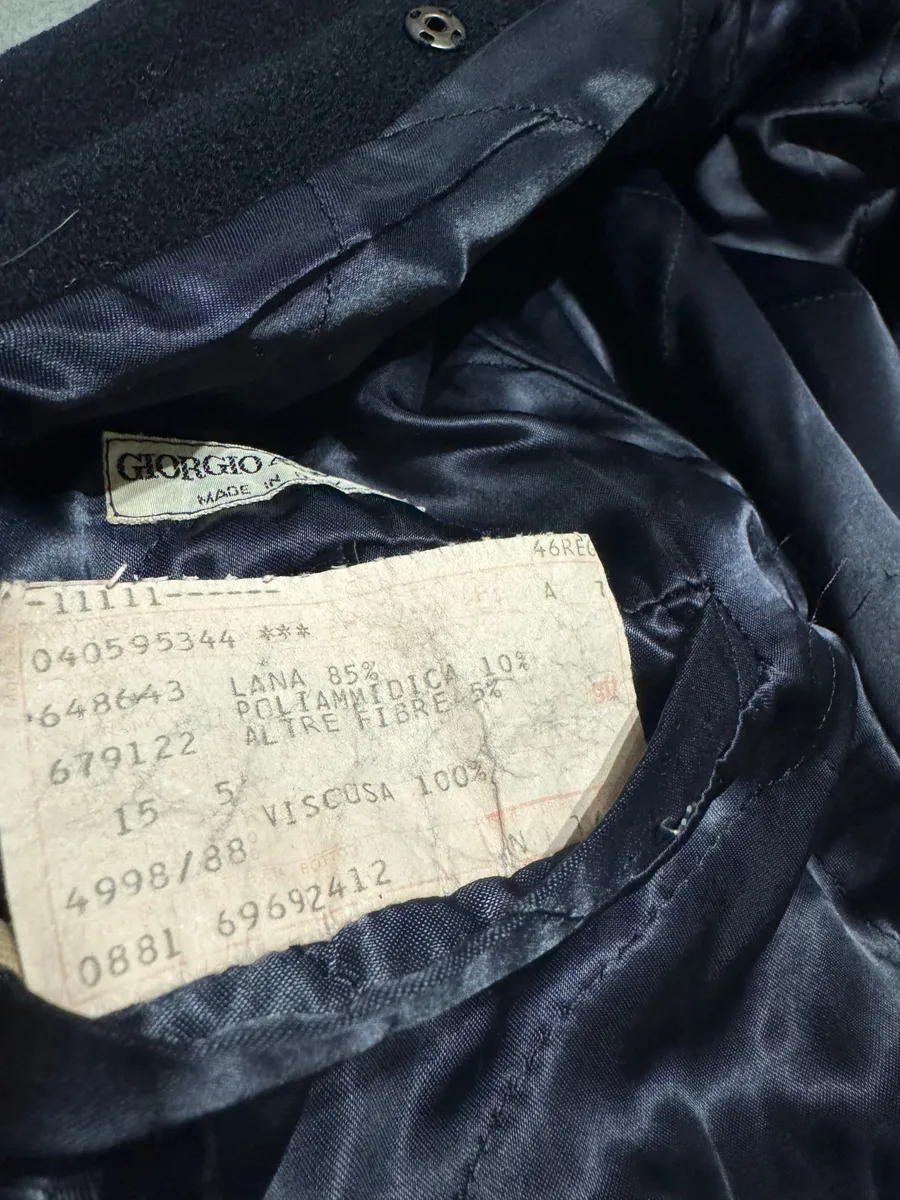 GIORGIO A
MADE IN
46REG
-11111------
A 7
040595344 ***
648643 LANA 85%
POLIAMMIDICA 10%
679122 ALTRE FIBRE 5%
15 5 VISCOSA 100%
4998/88
N
0881 69692412